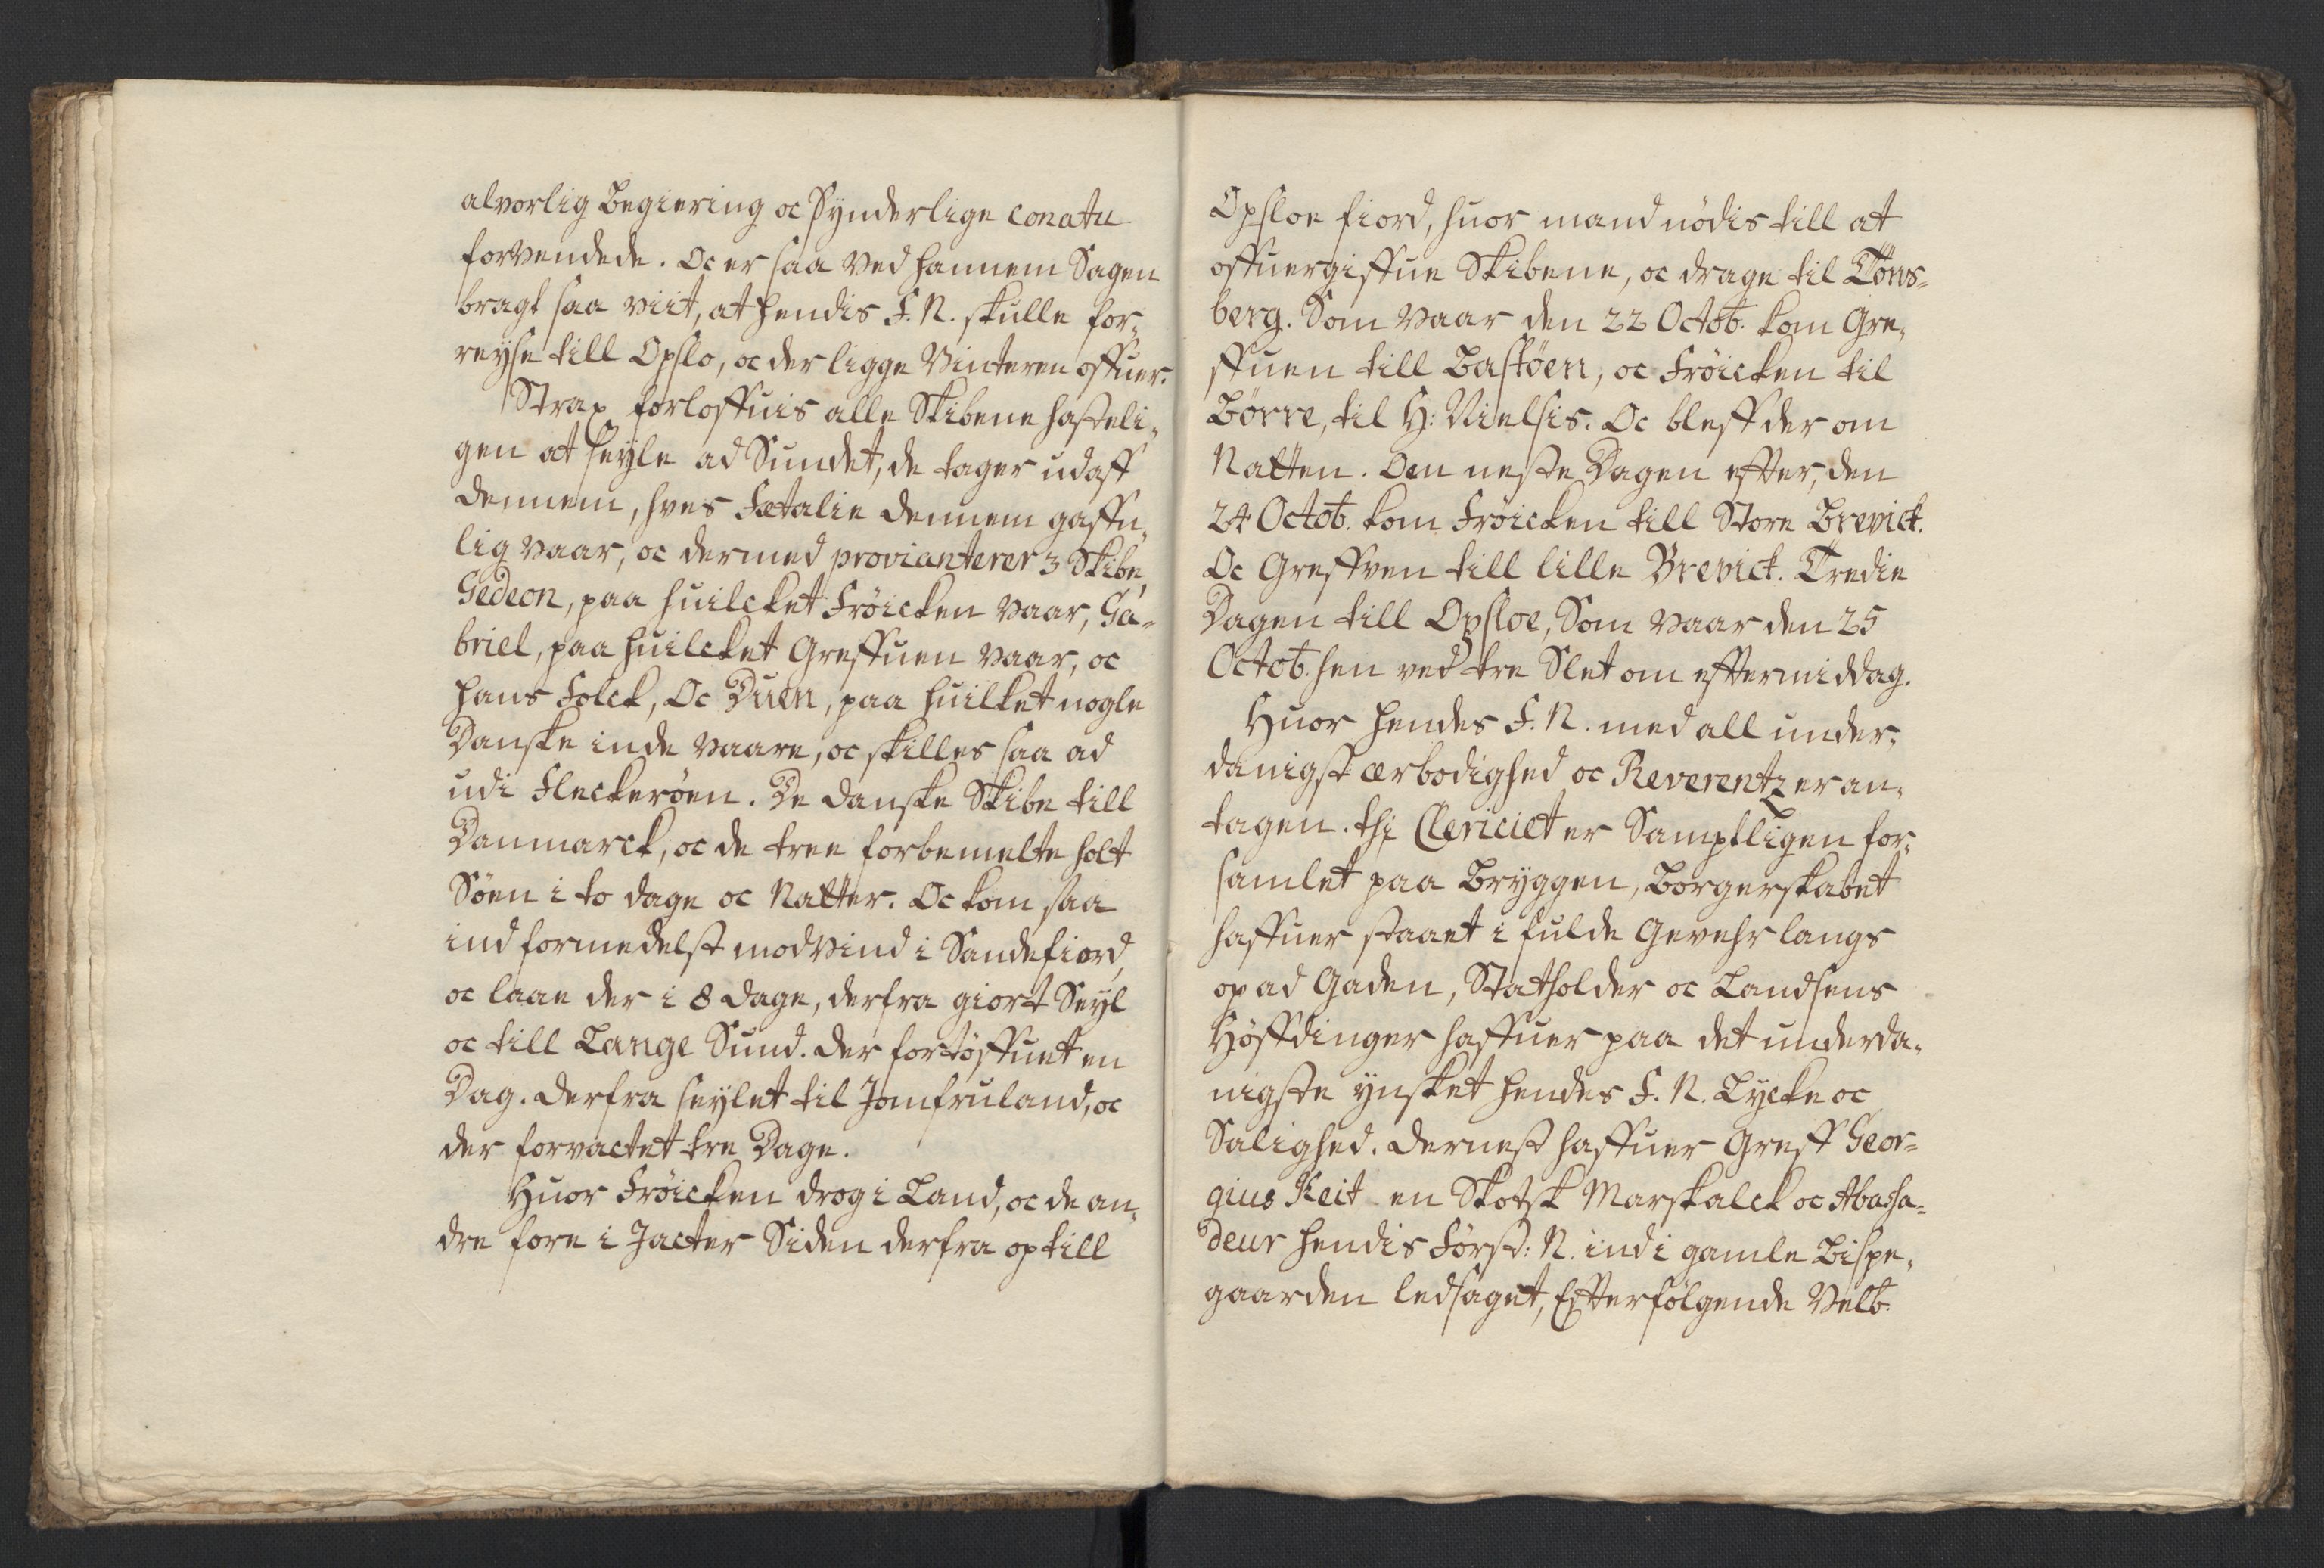 alvorlig Begiering oc Synderlige conatu
forvendede. Oc er saa ved hannem Sagen
bragt saa viit, at hendis F. N. skulle for-
reyse till Opslo, oc der ligge Vinteren offuer.
Strax forloffuis alle Skibene hasteli-
gen at seyle ad Sundet, de tager udaff
dennem, hves Fetalie dennem gaffn-
lig vaar, oc dermed provianterer 3 Skibe,
Gedeon, paa huilcket Fröicken vaar, Ga-
briel, paa huilcket Greffuen vaar, oc
hans Folck, Oc Duen, paa huilket nogle
Danske inde vaare, oc skilles saa ad
udi Fleckeröen. De danske Skibe till
Danmarck, oc de tree forbemelte holt
Söen i to dage oc Natter. Oc kom saa
ind formedelst modvind i Sandefiord,
oc laae der i 8 dage, derfra giort Seyl
oc till Lange Sund. der fortöffuet en
Dag. derfra seylet til Jomfruland, oc
der forvactet tre Dage.
Huor Fröicken drog i Land, oc de an-
dre fore i Jacter Siden derfra op till
Opsloe fiord, huor mand nödis till at
offuergiffue Skibene, oc drage til Tönns-
berg. Som vaar den 22 Octob. kom Gre-
ffuen till Bastöen, oc Fröicken til
Börre, til H: Nielsis. Oc bleff der om
Natten. Den neste Dagen effter, den
24 Octob. kom Fröicken till Store Brevick.
Oc Greffven till lille Brevick. Tredie
Dagen till Opsloe, Som vaar den 25
Octob. hen ved tre Slet om effter middag.
Huor hendes F. N. med all under-
danigst ærbodighed oc Reverentz er an-
tagen. thi Clericiet er Samptligen for-
samlet paa Bryggen, Borgerskabet
haffuer staaet i fulde Gevehr langs
op ad Gaden, Statholder oc Landsens
Höffdinger haffuer paa det underda-
nigste ynsket hendes F. N. Lycke oc
Salighed. dernest haffuer Greff Geor-
gius Keit en Skotsk Marskalck oc Abassa-
deur hendis Först: N. ind i gamle Bispe-
gaarden ledsaget, Effterfölgende Velb.